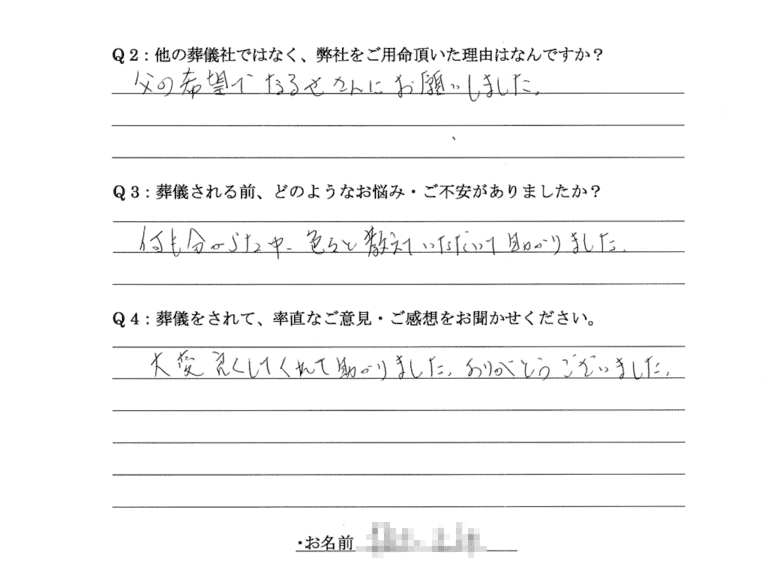 Q2：他の葬儀社ではなく、弊社をご用命頂いた理由はなんですか？
父の希望でなるせさんにお願いしました。
Q3：葬儀される前、どのようなお悩み・ご不安がありましたか？
何も分からな中、色々と教えていただいて助かりました。
Q4：葬儀をされて、率直なご意見・ご感想をお聞かせください。
大変良くしてくれて助かりました。ありがとうございました。
・お名前